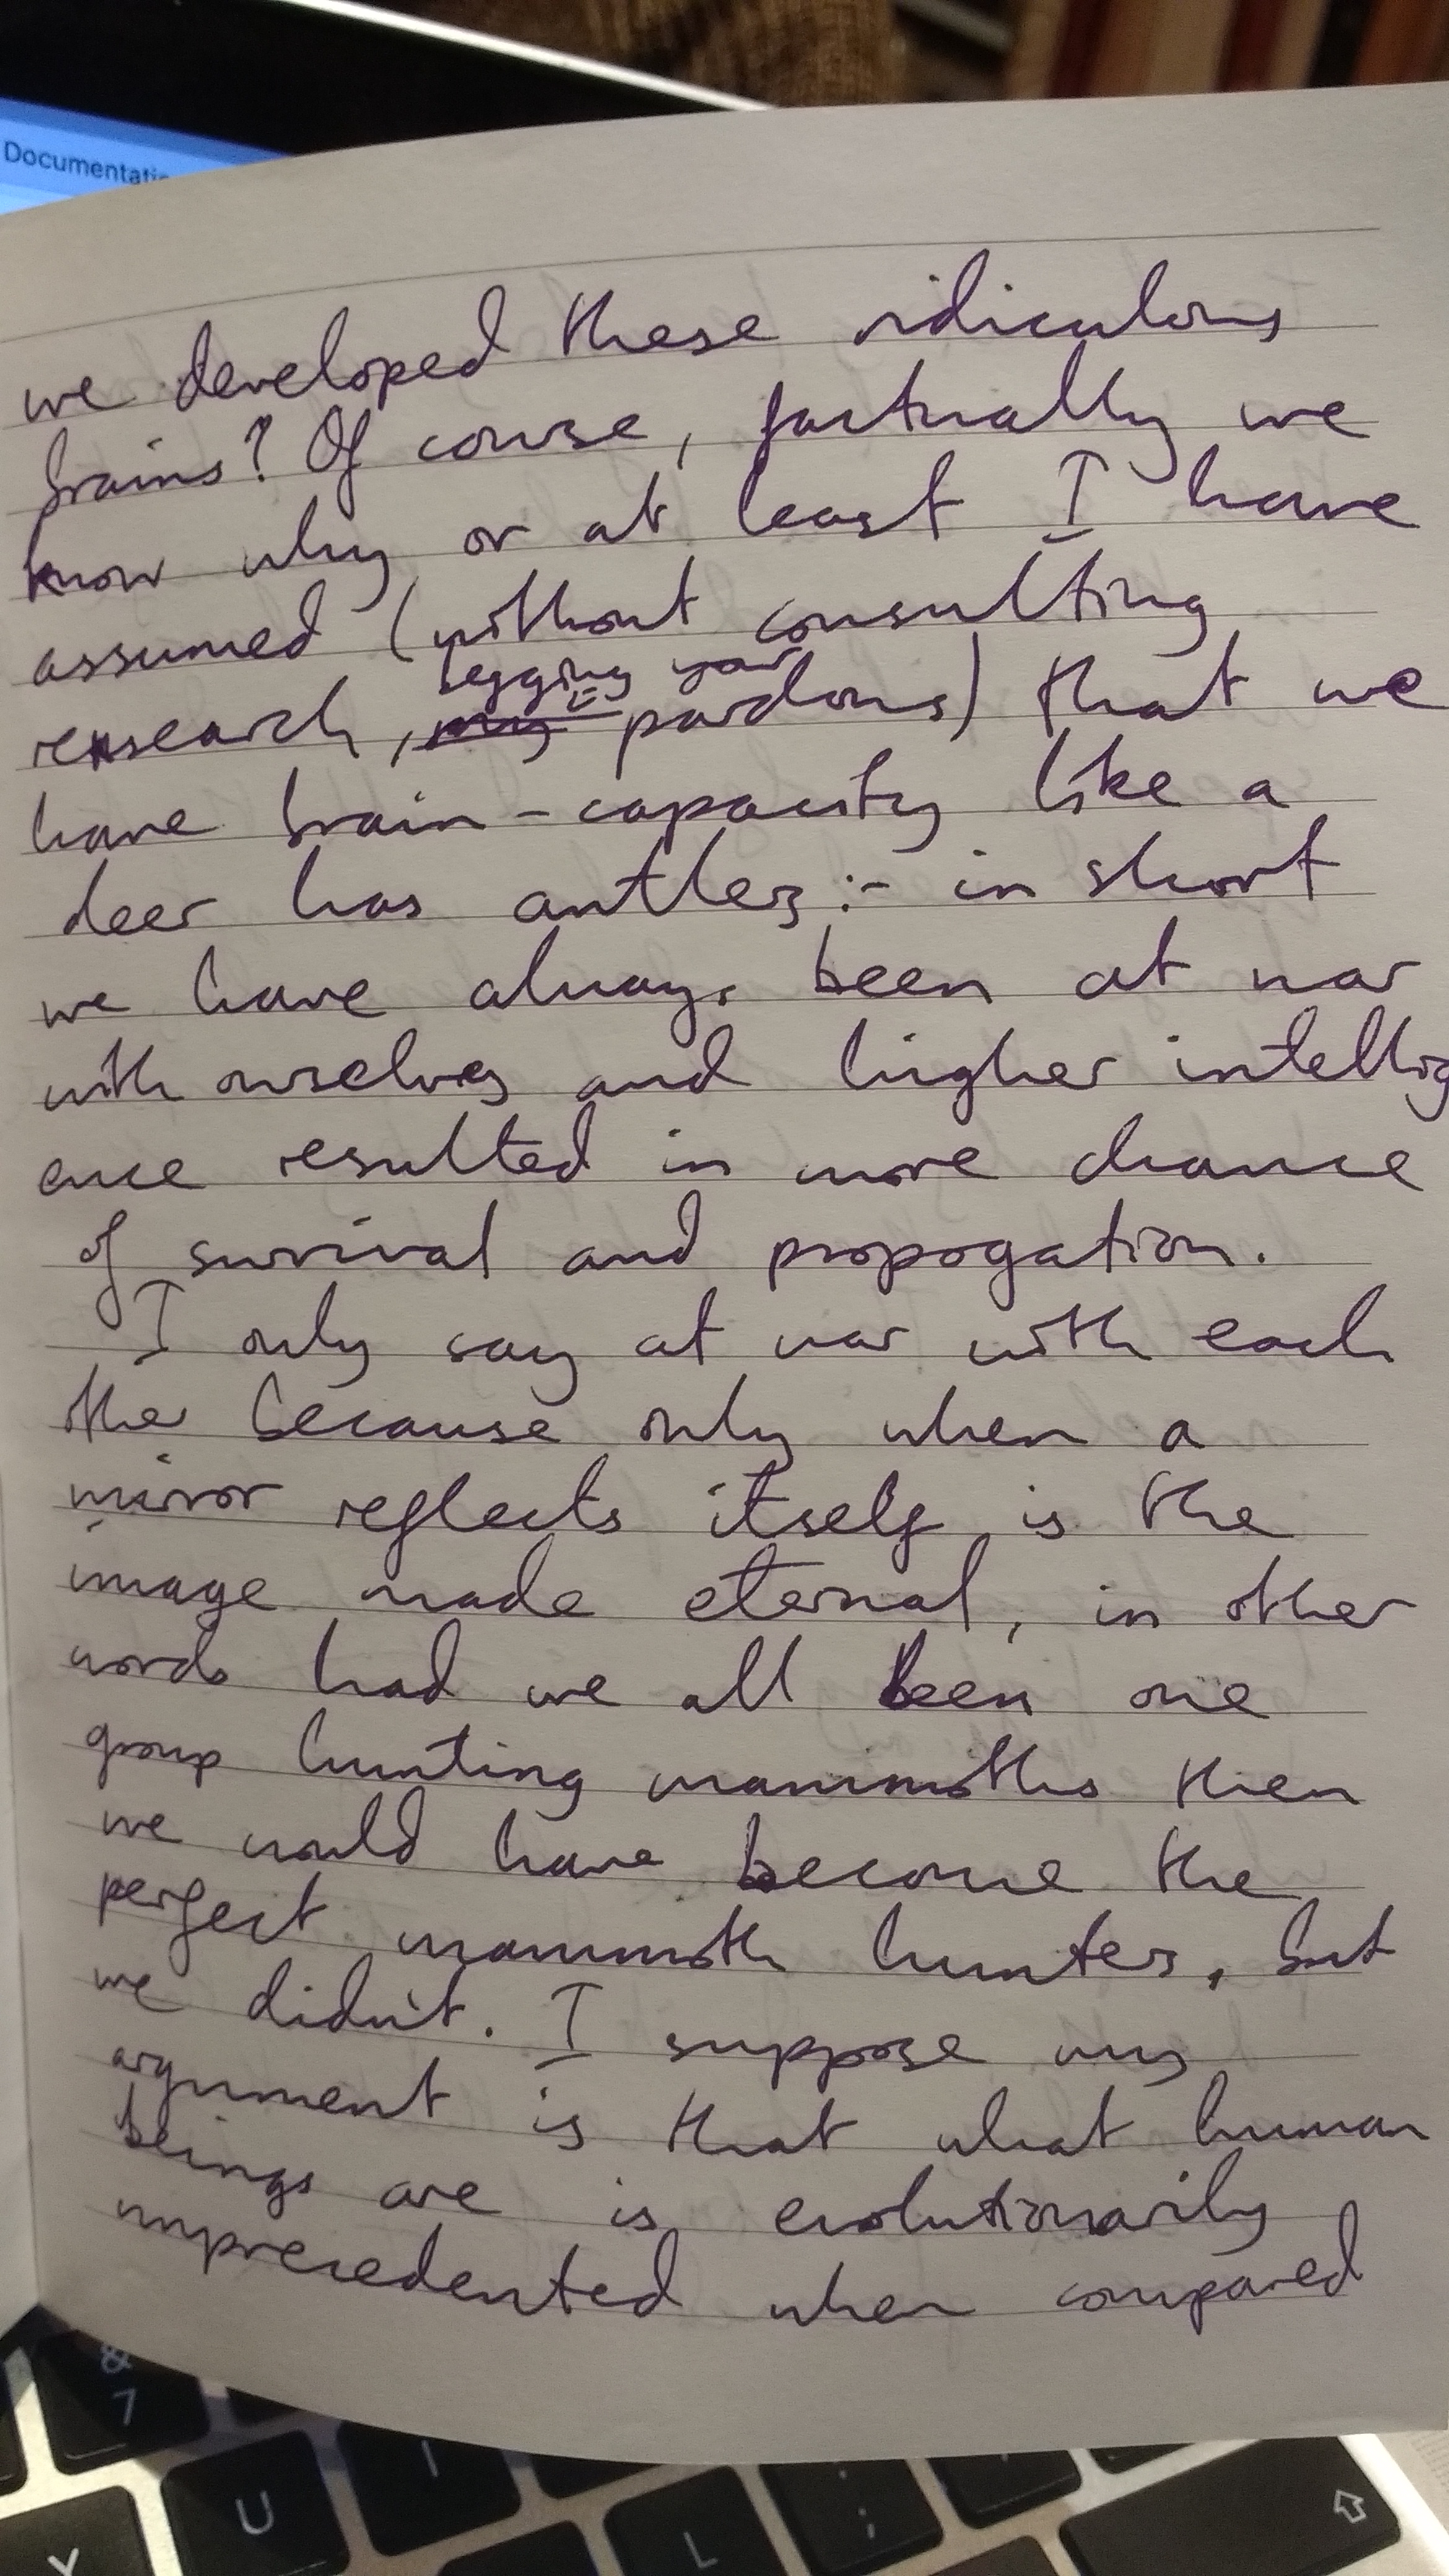 Documentati
we developed these ridiculous
brains? Of course, factually we
know why or at least I have
assumed (without consulting
begging your
research, my pardons) that we
have brain-capacity like a
deer has antlers:- in short
we have always been at war
with ourselves and higher intellig
ence resulted in more chance
of survival and propogation.
I only say at war with each
other because only when a
mirror reflects itself is the
image made eternal, in other
words had we all been one
group hunting mammoths then
we would have become the
perfect mammoth hunters, but
we didn't. I suppose my
argument is that what human
beings are is evolutionarily
unprecedented when compared
&
7
U
I
L
;
Y